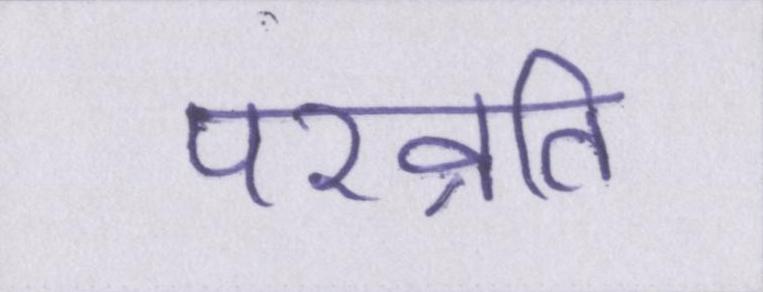 परव्रति